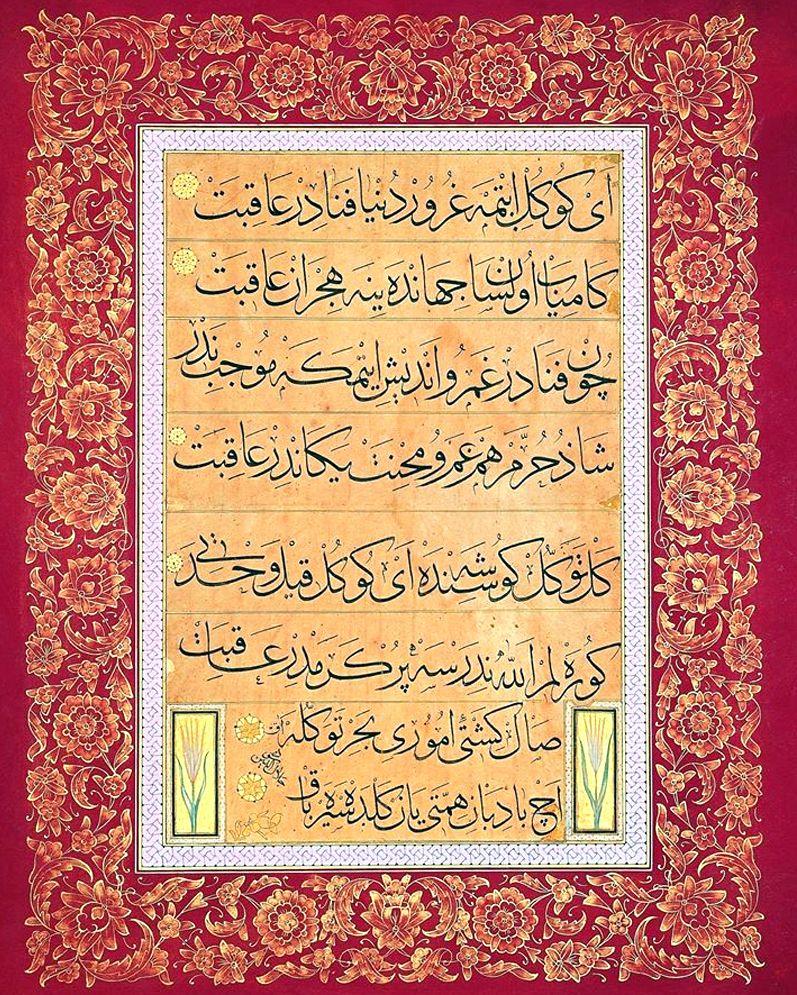 اَی کُوکُلْ اِیْتمَه غُرُورْ دُنْیَا فَنَادِرْ عَاقِبَتْ
کَامْیَابْ اُولْسَانْ جِهَانْدَه یِنَه هِجْرَانْ عَاقِبَتْ
چُونْ فَنَادِرْ غَمْ و اَنْدِیشْ اِیتْمَکَه مُوجِبْ نَدِرْ
شَاذْ خُرَّمْ هَمْ غَمْ و مِحْنَتْ یِکَانْدِرْ عَاقِبَتْ
کَلْ تَوَکُّلْ کُوشَه سِنْدَه اَی کُوکُلْ قِیلْ وَحْدَتی
کُورَه لِمْ اَللّٰه نَدِرْسَه پُرْ کَرَمْدِرْ عَاقِبَتْ
صَالْ کَشْتئ اُمُورِی بَحْرِ تَوَکُّلَه
اَچْ بَادْبَانِ هِمَّتی یَانْ کَلْدِه سَیْرَه بَاقْ